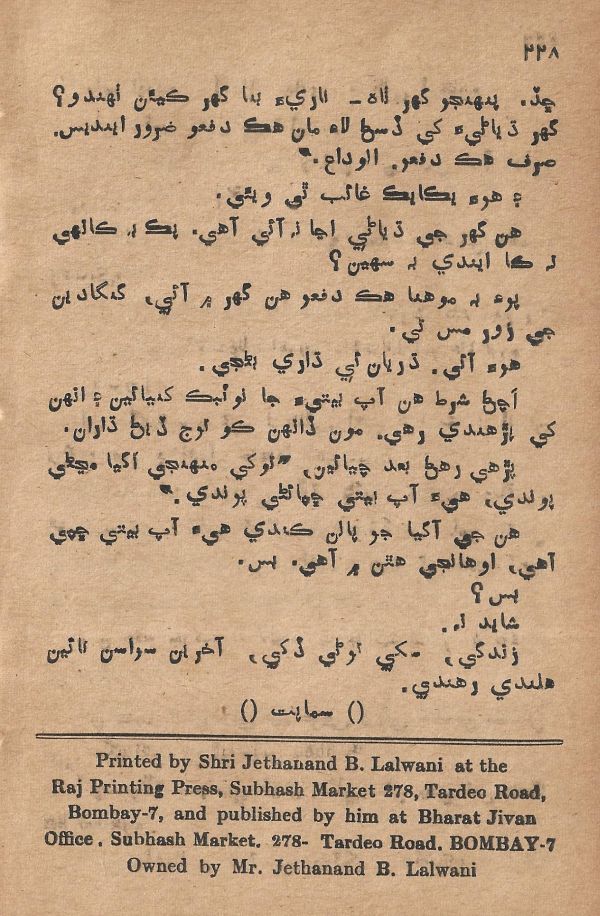 ۲۲۸
ڇڏ. پنهنجو گهر ٺاھ - ناريءَ بنا گهر ڪيئن ٺهندو؟
گهر ڌياڻيءَ کي ڏسڻ لاءِ مان هڪ دفعو ضرور اينديس.
صرف هڪ دفعو. الوداع."
۽ هوءَ يڪايڪ غائب ٿي ويئي.
هن گهر جي ڌياڻي اڃا نہ آئي آهي. پڪ بہ ڪانهي
تہ ڪا ايندي بہ سهين؟
پوءِ بہ موهنا هڪ دفعو هن گهر ۾ آئي، گنگادين
جي زور مس تي.
هوءَ آئي. ڌريان ئي ڌاري بڻجي.
اچڻ شرط هن آپ بيتيءَ جا نوٽبڪ کنيائين ۽ انهن
کي پڙهندي رهي. مون ڏانهن ڪو توج ڏيڻ ڌاران.
پڙهي رهڻ بعد چيائين، "توکي منهنجي آگيا مڃڻي
پوندي، هيءَ آپ بيتي ڇپائڻي پوندي."
هن جي آگيا جو پالن ڪندي هيءَ آپ بيتي ڇپي
آهي، اوهانجي هٿن ۾ آهي. بس.
بس؟
شايد نہ.
زندگي، سکي توڻي ڏکي، آخرين سواسن تائين
هلندي رهندي.
() سماپت ()
Printed by Shri Jethanand B. Lalwani at the
Raj Printing Press, Subhash Market 278, Tardeo Road,
Bombay-7, and published by him at Bharat Jivan
Office, Subhash Market. 278- Tardeo Road. BOMBAY-7
Owned by Mr. Jethanand B. Lalwani